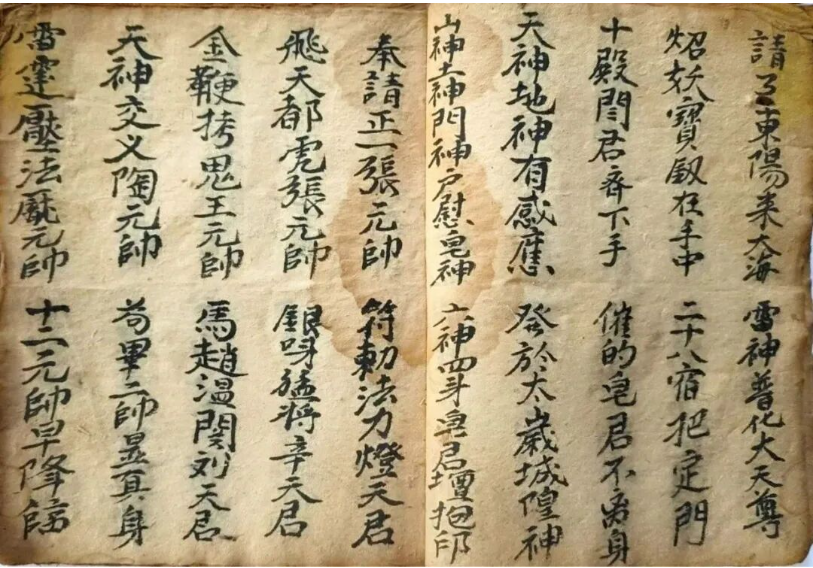 請了東陽来大海 雷神普化大天尊
炤妖寶劔在手中 二十八宿把定門
十殿閆君齐下手 催的皂君不离身
天神地神有感應 發於太歲城隍神
山神土神門神户慰皂神 六神四身皂君壇抱印
奉請正一張元帥 符勅法力燈天君
飛天都虎張元帥 銀呀猛將辛天君
金鞭拷鬼王元帥 馬趙温関刘天君
天神交义陶元帥 苟畢二帥显真身
雷霆壓法厖元帥 十二元帥早降